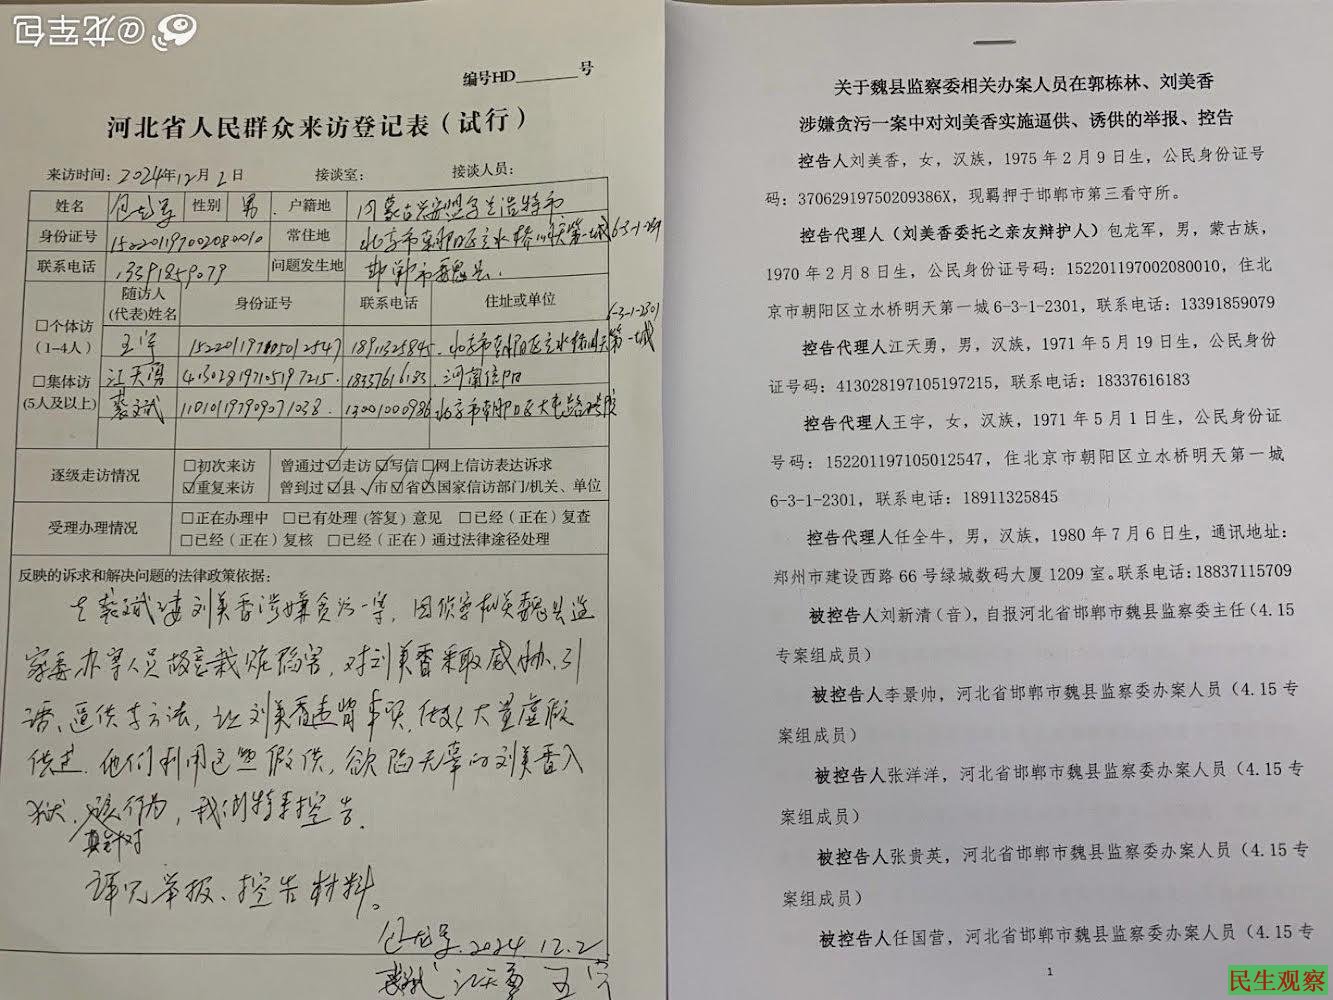 @龙军包
编号HD______号
河北省人民群众来访登记表（试行）
来访时间：2024年12月2日 接谈室： 接谈人员：
姓名 包龙军 性别 男 户籍地 内蒙古兴安盟乌兰浩特市
身份证号 152201197002080010 常住地 北京市朝阳区立水桥明天第一城6-3-1-2301
联系电话 13391859079 问题发生地 邯郸市魏县
□个体访
(1-4人)
□集体访
(5人及以上)
随访人
(代表)姓名 身份证号 联系电话 住址或单位
王宇 152201197105012547 18911325845 北京市朝阳区立水桥明天第一城
6-3-1-2301
江天勇 413028197105197215 18337616183 河南信阳
袭文斌 13001000986 北京市朝阳区
逐级走访情况
□初次来访 曾通过☑走访☑写信□网上信访表达诉求
☑重复来访 曾到过☑县 ☑市☑省☑国家信访部门/机关、单位
受理办理情况
□正在办理中 □已有处理(答复)意见 □已经（正在）复查
□已经（正在）复核 □已经（正在）通过法律途径处理
反映的诉求和解决问题的法律政策依据：
刘美香涉嫌贪污一案，因侦察机关魏县监
察委办案人员故意栽赃陷害，对刘美香采取威胁、引
诱、逼供等方法，让刘美香违背事实，做了大量虚假
供述，他们利用这些假供，欲陷无辜的刘美香入
狱，该行为，我们特来控告。
针对
详见举报、控告材料。
包龙军 2024.12.2
江天勇 王宇
关于魏县监察委相关办案人员在郭栋林、刘美香
涉嫌贪污一案中对刘美香实施逼供、诱供的举报、控告
控告人刘美香，女，汉族，1975年2月9日生，公民身份证号
码：37062919750209386X，现羁押于邯郸市第三看守所。
控告代理人（刘美香委托之亲友辩护人）包龙军，男，蒙古族，
1970年2月8日生，公民身份证号码：152201197002080010，住北
京市朝阳区立水桥明天第一城6-3-1-2301，联系电话：13391859079
控告代理人江天勇，男，汉族，1971年5月19日生，公民身份
证号码：413028197105197215，联系电话：18337616183
控告代理人王宇，女，汉族，1971年5月1日生，公民身份证
号码：152201197105012547，住北京市朝阳区立水桥明天第一城
6-3-1-2301，联系电话：18911325845
控告代理人任全牛，男，汉族，1980年7月6日生，通讯地址：
郑州市建设西路66号绿城数码大厦1209室。联系电话：18837115709
被控告人刘新清（音），自报河北省邯郸市魏县监察委主任（4.15
专案组成员）
被控告人李景帅，河北省邯郸市魏县监察委办案人员（4.15专
案组成员）
被控告人张洋洋，河北省邯郸市魏县监察委办案人员（4.15专
案组成员）
被控告人张贵英，河北省邯郸市魏县监察委办案人员（4.15专
案组成员）
被控告人任国营，河北省邯郸市魏县监察委办案人员（4.15专
1
民生观察